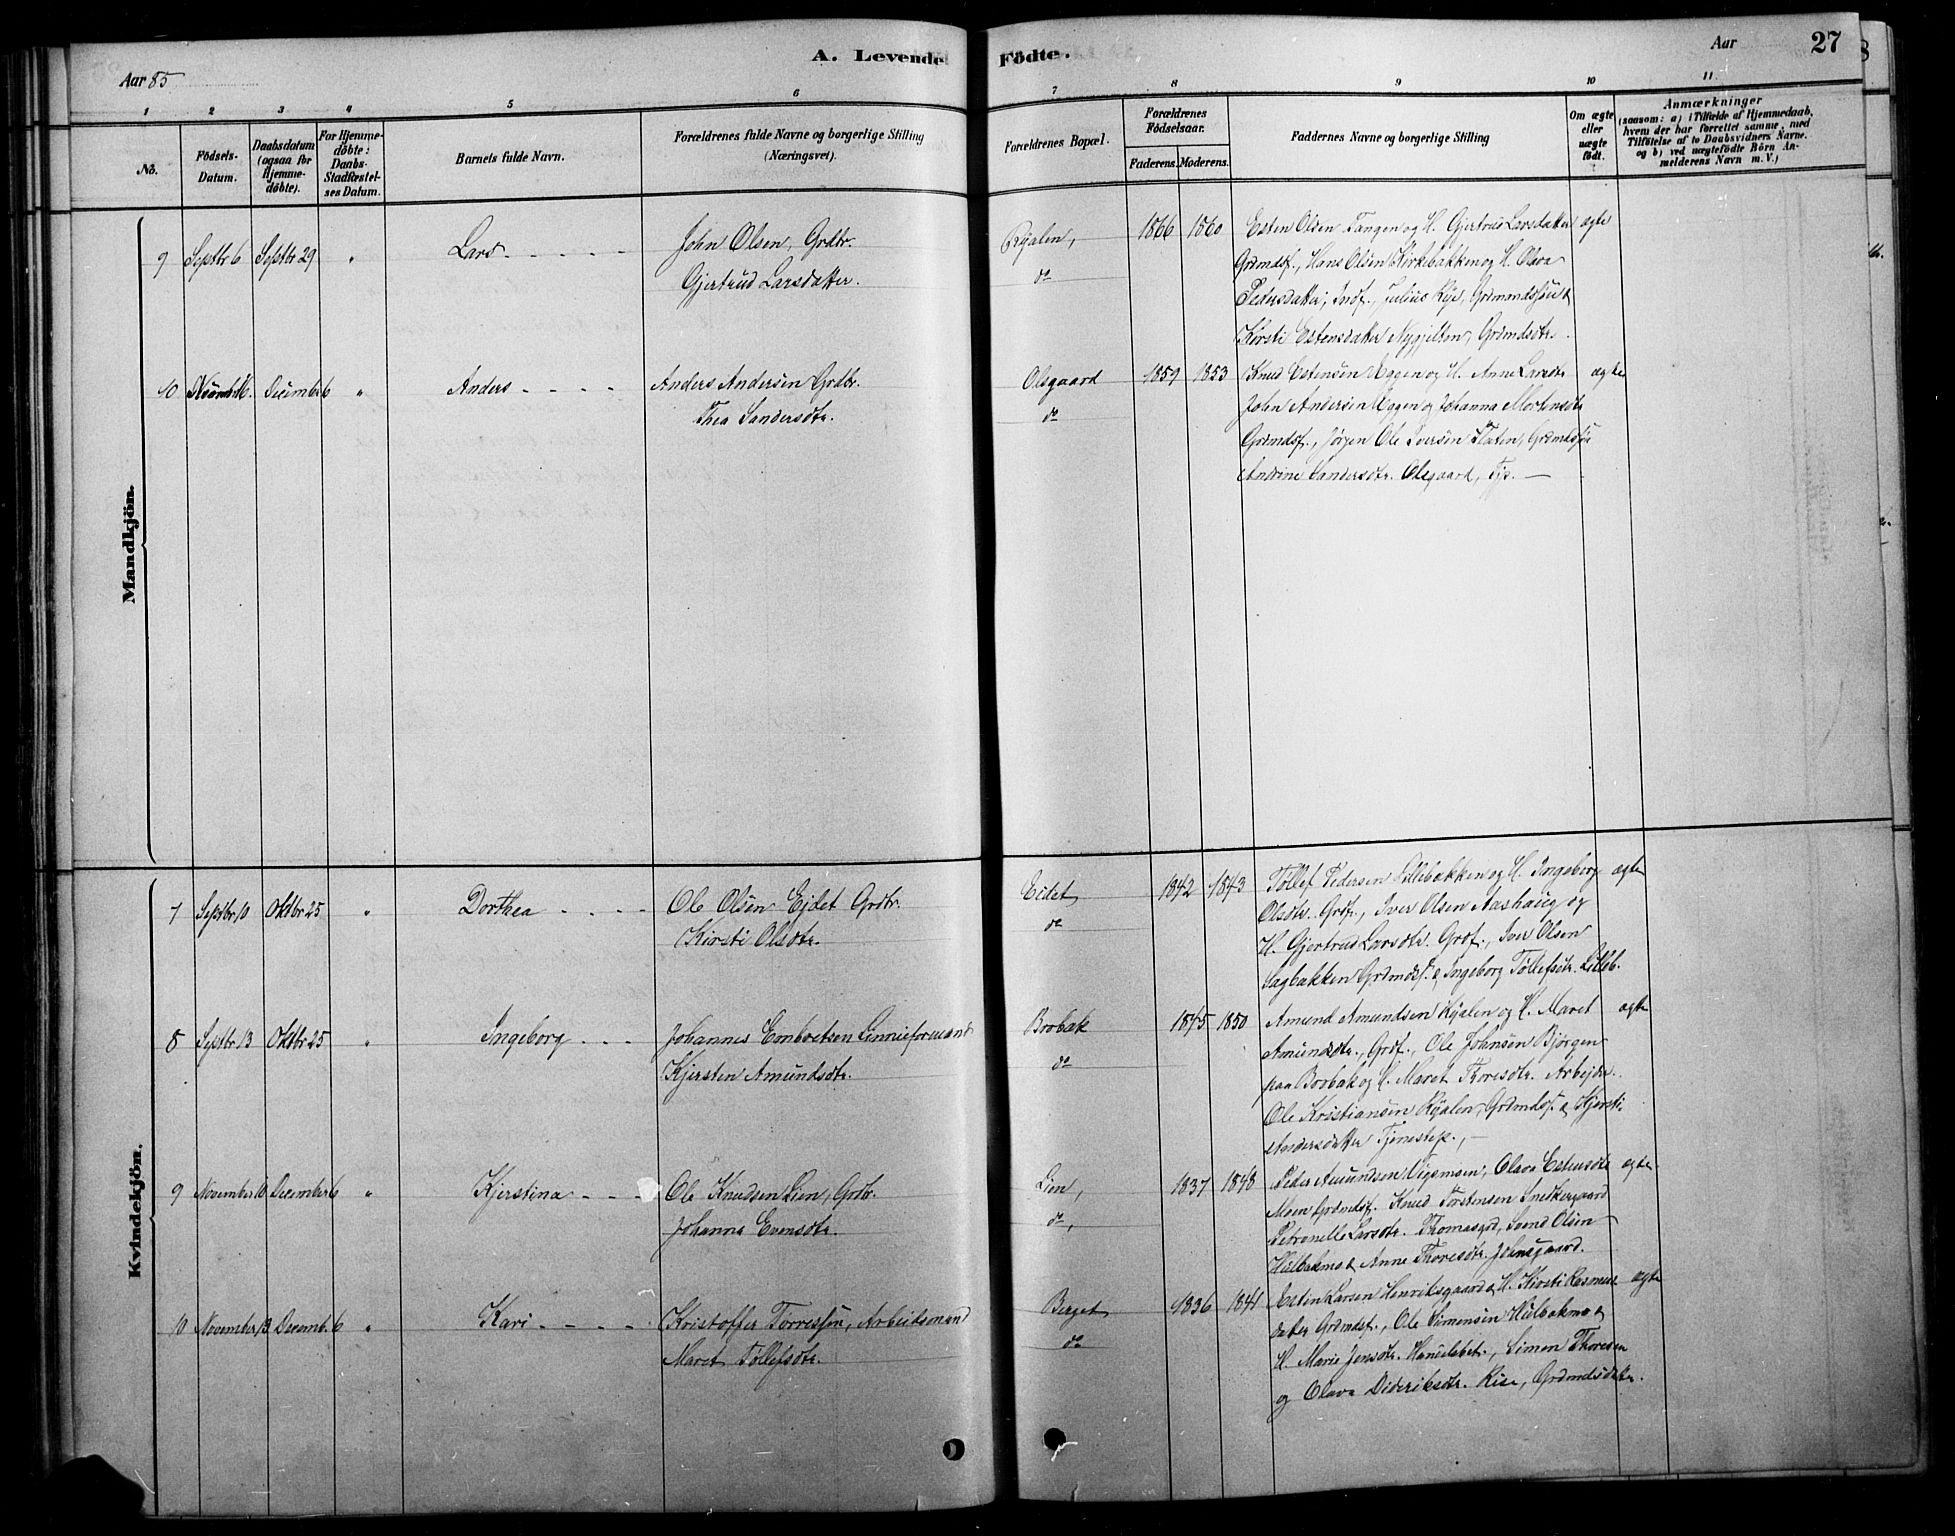 A. Levende Födte.
Aar 85
Aar
27
1 2 3 4 5 6 7 8 9 10 11
No.
Födsels-Datum.
Daabsdatum (ogsaa for Hjemme-döbte).
For Hjemme-döbte: Daabs-Stadfæstel-ses Datum.
Barnets fulde Navn.
Forældrenes fulde Navne og borgerlige Stilling (Næringsvei).
Forældrenes Bopæl.
Forældrenes Födselsaar.
Faderens. Moderens.
Faddernes Navne og borgerlige Stilling
Om ægte eller uægte födt.
Anmærkninger
(saasom: a) i Tilfælde af Hjemmedaab,
hvem der har forrettet samme, med
Tilföielse af to Daabsvidners Navne.
og b) ved uægtefödte Börn An-
melderens Navn m. V.)
Mandkjön.
9 Septbr 6 Septbr 29 " Lars John Olsen, Grdbr. Ryalen, 1866 1860 Esten Olsen Tangen og H. Gjertrud Larsdatter ægte
Gjertrud Larsdatter. do Grdmdsf., Hans Olsen Kirkebakken og H. Olava
Pedersdatter, Indf., Julius Rise, Grdmandssön &
Kirsti Estensdatter Nygjelten, Grdmdsdtr.
10 December 6 " Anders Anders Andersen Grdbr. Olsgaard 1859 1853 Knud Estensen Eggen og H. Anne Larsdtr ægte
Thea Sandersdtr. do John Andersen Eggen og Johanna Mortensdtr
Grdmdsf., Jörgen Ole Iversen Flaten, Grdmdssön
Andrine Sandersdtr. Olsgaard, Tjp.
Kvindekjön.
7 Septbr 10 Oktbr 25 " Dorthea Ole Olsen Ejdet Grdbr. Eidet 1842 1843 Tollef Pedersen Lillebakken og H. Ingeborg ægte
Kirsti Olsdtr. do Olsdtr. Grdf., Iver Olsen Aashaug og
H. Gjertrud Larsdtr. Grdf., Iver Olsen
Sagbakken Grdmdsf. & Ingeborg Tollefsdtr. Lilleb.
8 Septbr. 13 Oktbr 25 " Ingeborg Johannes Embretsen Linnieformand Brobak 1845 1850 Amund Amundsen Ryalen og H. Maret ægte
Kjersten Amundsdtr. do Amundsdtr., Grdf., Ole Johnsen Bjørgen
paa Brobak og H. Maret Thoresdtr. Arbejdsf.
Ole Kristiansen Ryalen, Grdmdsf. & Kjersti
Andersdatter Tjenestep.,
9 November 10 December 6 " Kjerstina Ole Knudsen Lien, Grdbr. Lien, 1837 1848 Peder Amundsen Vigsmoen, Olava Estensdtr ægte
Johanna Evensdtr. do, Moen Grdmdsf. Knud Torstensen Snedkergaard
Petronelle Larsdtr. Thomasgrd, Svend Olsen
Hulbakmo & Anne Thoresdtr. Johnsgaard.
10 November 13 Decemb. 6 " Kari Kristoffer Torressen, Arbeidsmand Berget 1836 1841 Esten Larsen Henriksgaard & H. Kirsti Rasmus- ægte
Maret Tollefsdtr. do datter Grdmdsf., Ole Simensen Hulbakmo &
H. Marie Jensdtr. Handelsbet., Simen Thoresen
og Olava Dideriksdtr. Rise, Grdmdsdtr.